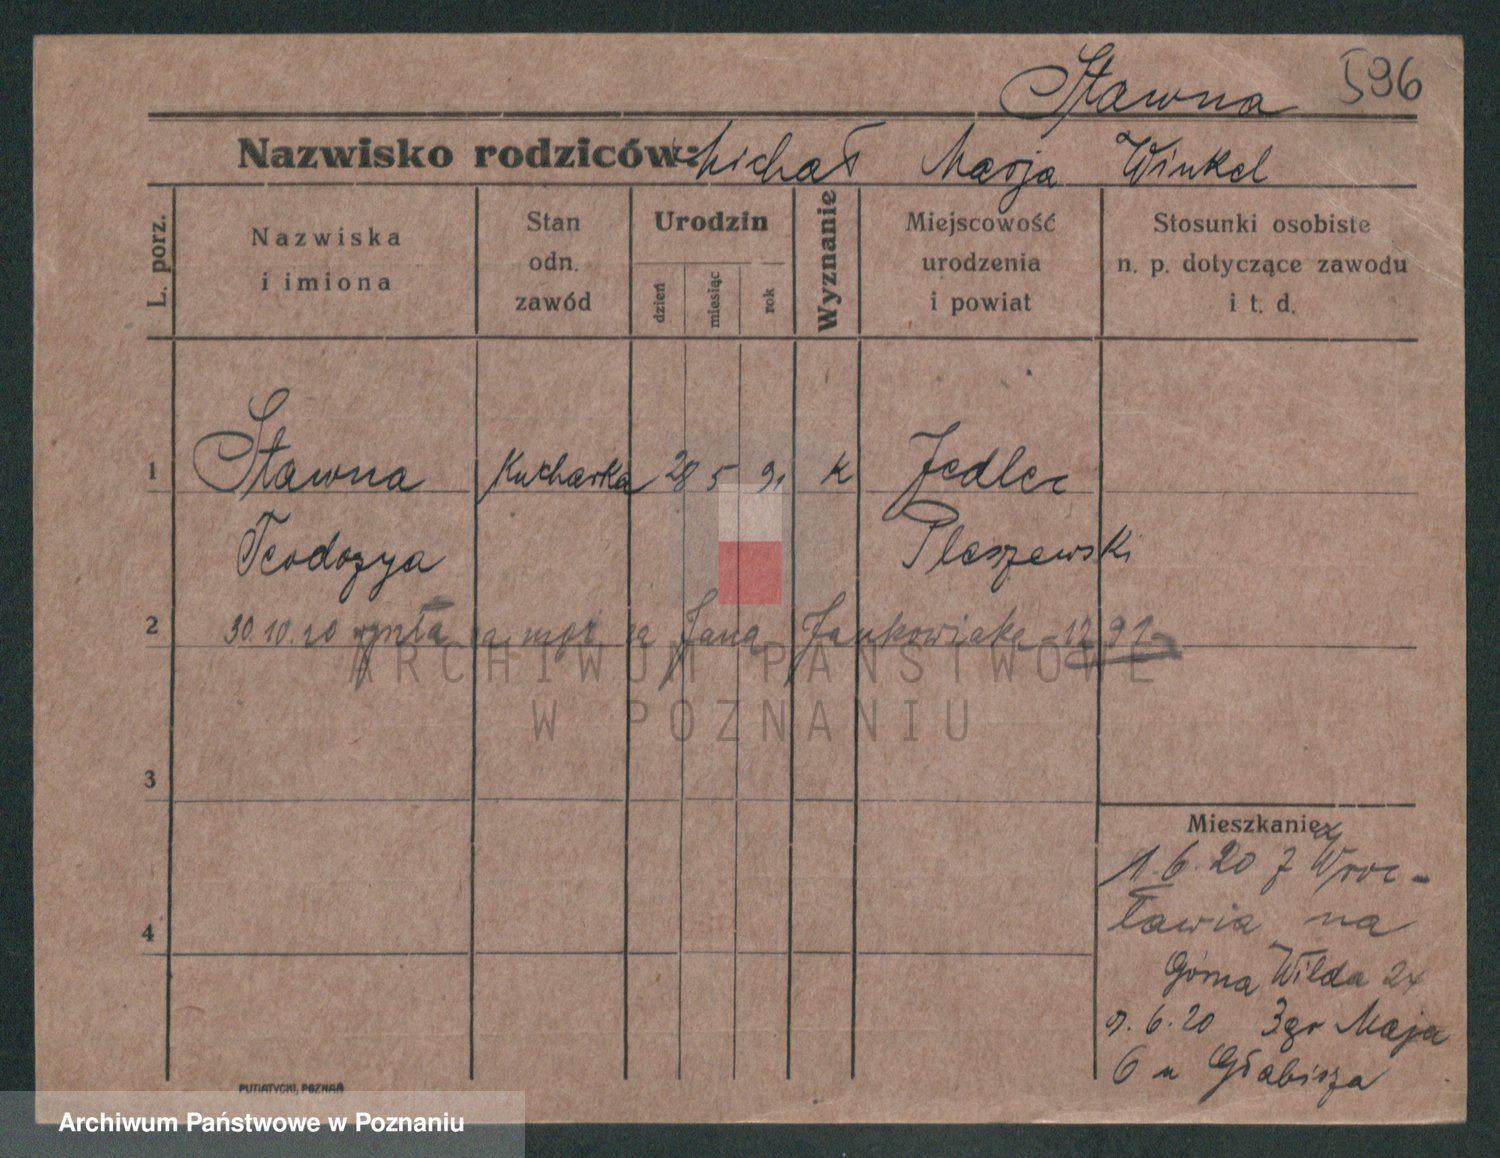 Sławna 596
Nazwisko rodziców: Michał Marja Winkel
L. porz.
Nazwiska
i imiona
Stan
odn.
zawód
Urodzin
dzień
miesiąc
rok
Wyznanie
Miejscowość
urodzenia
i powiat
Stosunki osobiste
n. p. dotyczące zawodu
i t. d.
1 Sławna Kucharka 28 5 91 K Jedlec
Teodozya Pleszewski
2 30.10.20 za Jana Jankowiaka
ARCHIWUM PAŃSTWOWE
W POZNANIU
3
Mieszkanie
1.6.20 z Wroc-
ławia na
4
Górna Wilda 24
9.6.20 3go Maja
6 u Głabisza
PUTIATYCKI, POZNAŃ
Archiwum Państwowe w Poznaniu